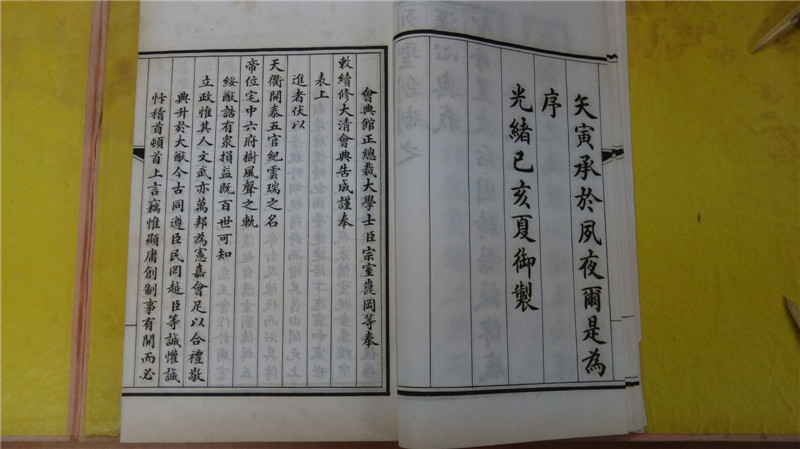 矢寅承於夙夜爾是為
序
光緒己亥夏御製
會典館正總裁大學士臣宗室崑岡等奉
敕續修大清會典告成謹奉
表上
進者伏以
天衢開泰五官紀雲瑞之名
帝位宅中六府樹風聲之軌
綏猷誥有眾損益既百世可知
立政惟其人文武亦萬邦為憲嘉會足以合禮敬
典升於大猷今古同遵臣民罔越臣等誠懽誠
忭稽首頓首上言竊惟顯庸創制事有開而必